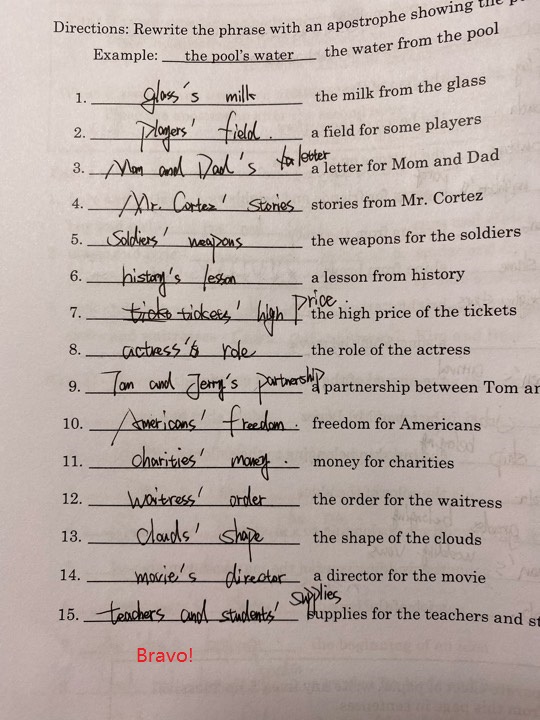 Directions: Rewrite the phrase with an apostrophe showing the
Example: the pool's water the water from the pool
1. glass's milk the milk from the glass
2. Players' field. a field for some players
3. Mom and Dad's letter a letter for Mom and Dad
4. Mr. Cortez' stories stories from Mr. Cortez
5. Soldiers' weapons the weapons for the soldiers
6. history's lesson a lesson from history
7. tickets' high price. the high price of the tickets
8. actress's role the role of the actress
9. Tom and Jerry's partnership a partnership between Tom
10. Americans' freedom. freedom for Americans
11. charities' money. money for charities
12. waitress' order the order for the waitress
13. clouds' shape the shape of the clouds
14. movie's director a director for the movie
15. teachers and students' supplies supplies for the teachers and
Bravo!